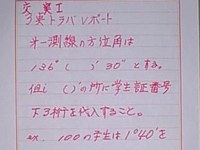 交実I
3実トラバレポート
第一測線の方位角は
136°( )′30″とする。
但し( )′の所に学生証番号
下3桁を代入すること。
ex. 100の学生は1°40′を